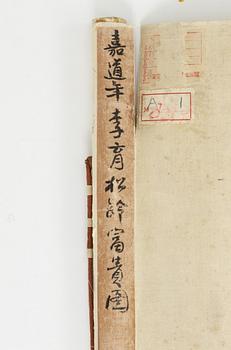 嘉道年李育松龄富貴圖
A 1